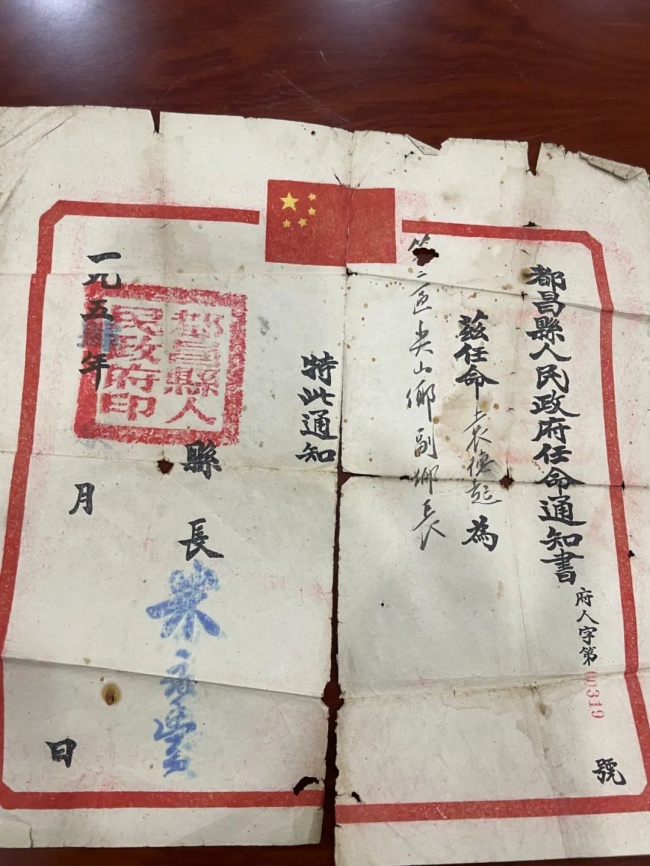 都昌縣人民政府任命通知書
府人字第00319號
茲任命袁德起為
第二區尖山鄉副鄉長
特此通知
縣長
一九五年月日
都昌縣人
民政府印